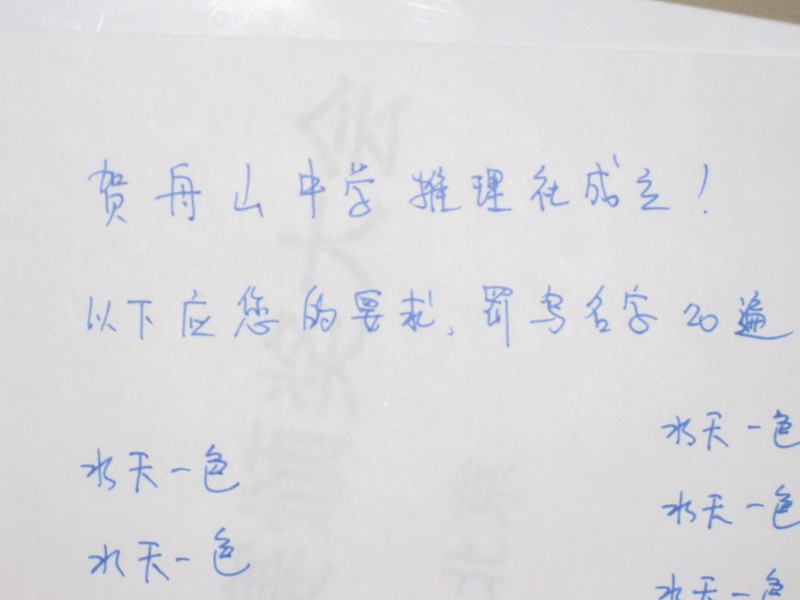 贺舟山中学推理社成立!
以下应您的要求,罚写名字20遍
水天一色
水天一色
水天一色
水天一色
水天一色
颁奖大会
北京